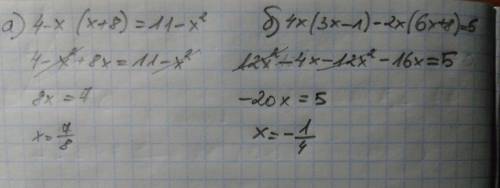 а) 4-x (x+8) = 11-x²
4-x²+8x = 11-x²
8x = 7
x = 7/8
б) 4x(3x-1)-2x(6x+8)=5
12x²-4x-12x²-16x=5
-20x = 5
x = -1/4